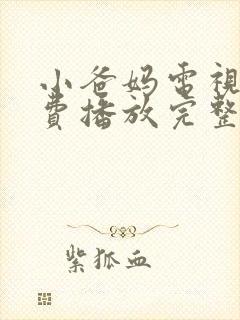 小爸妈電視
費播放完整
紫狐血